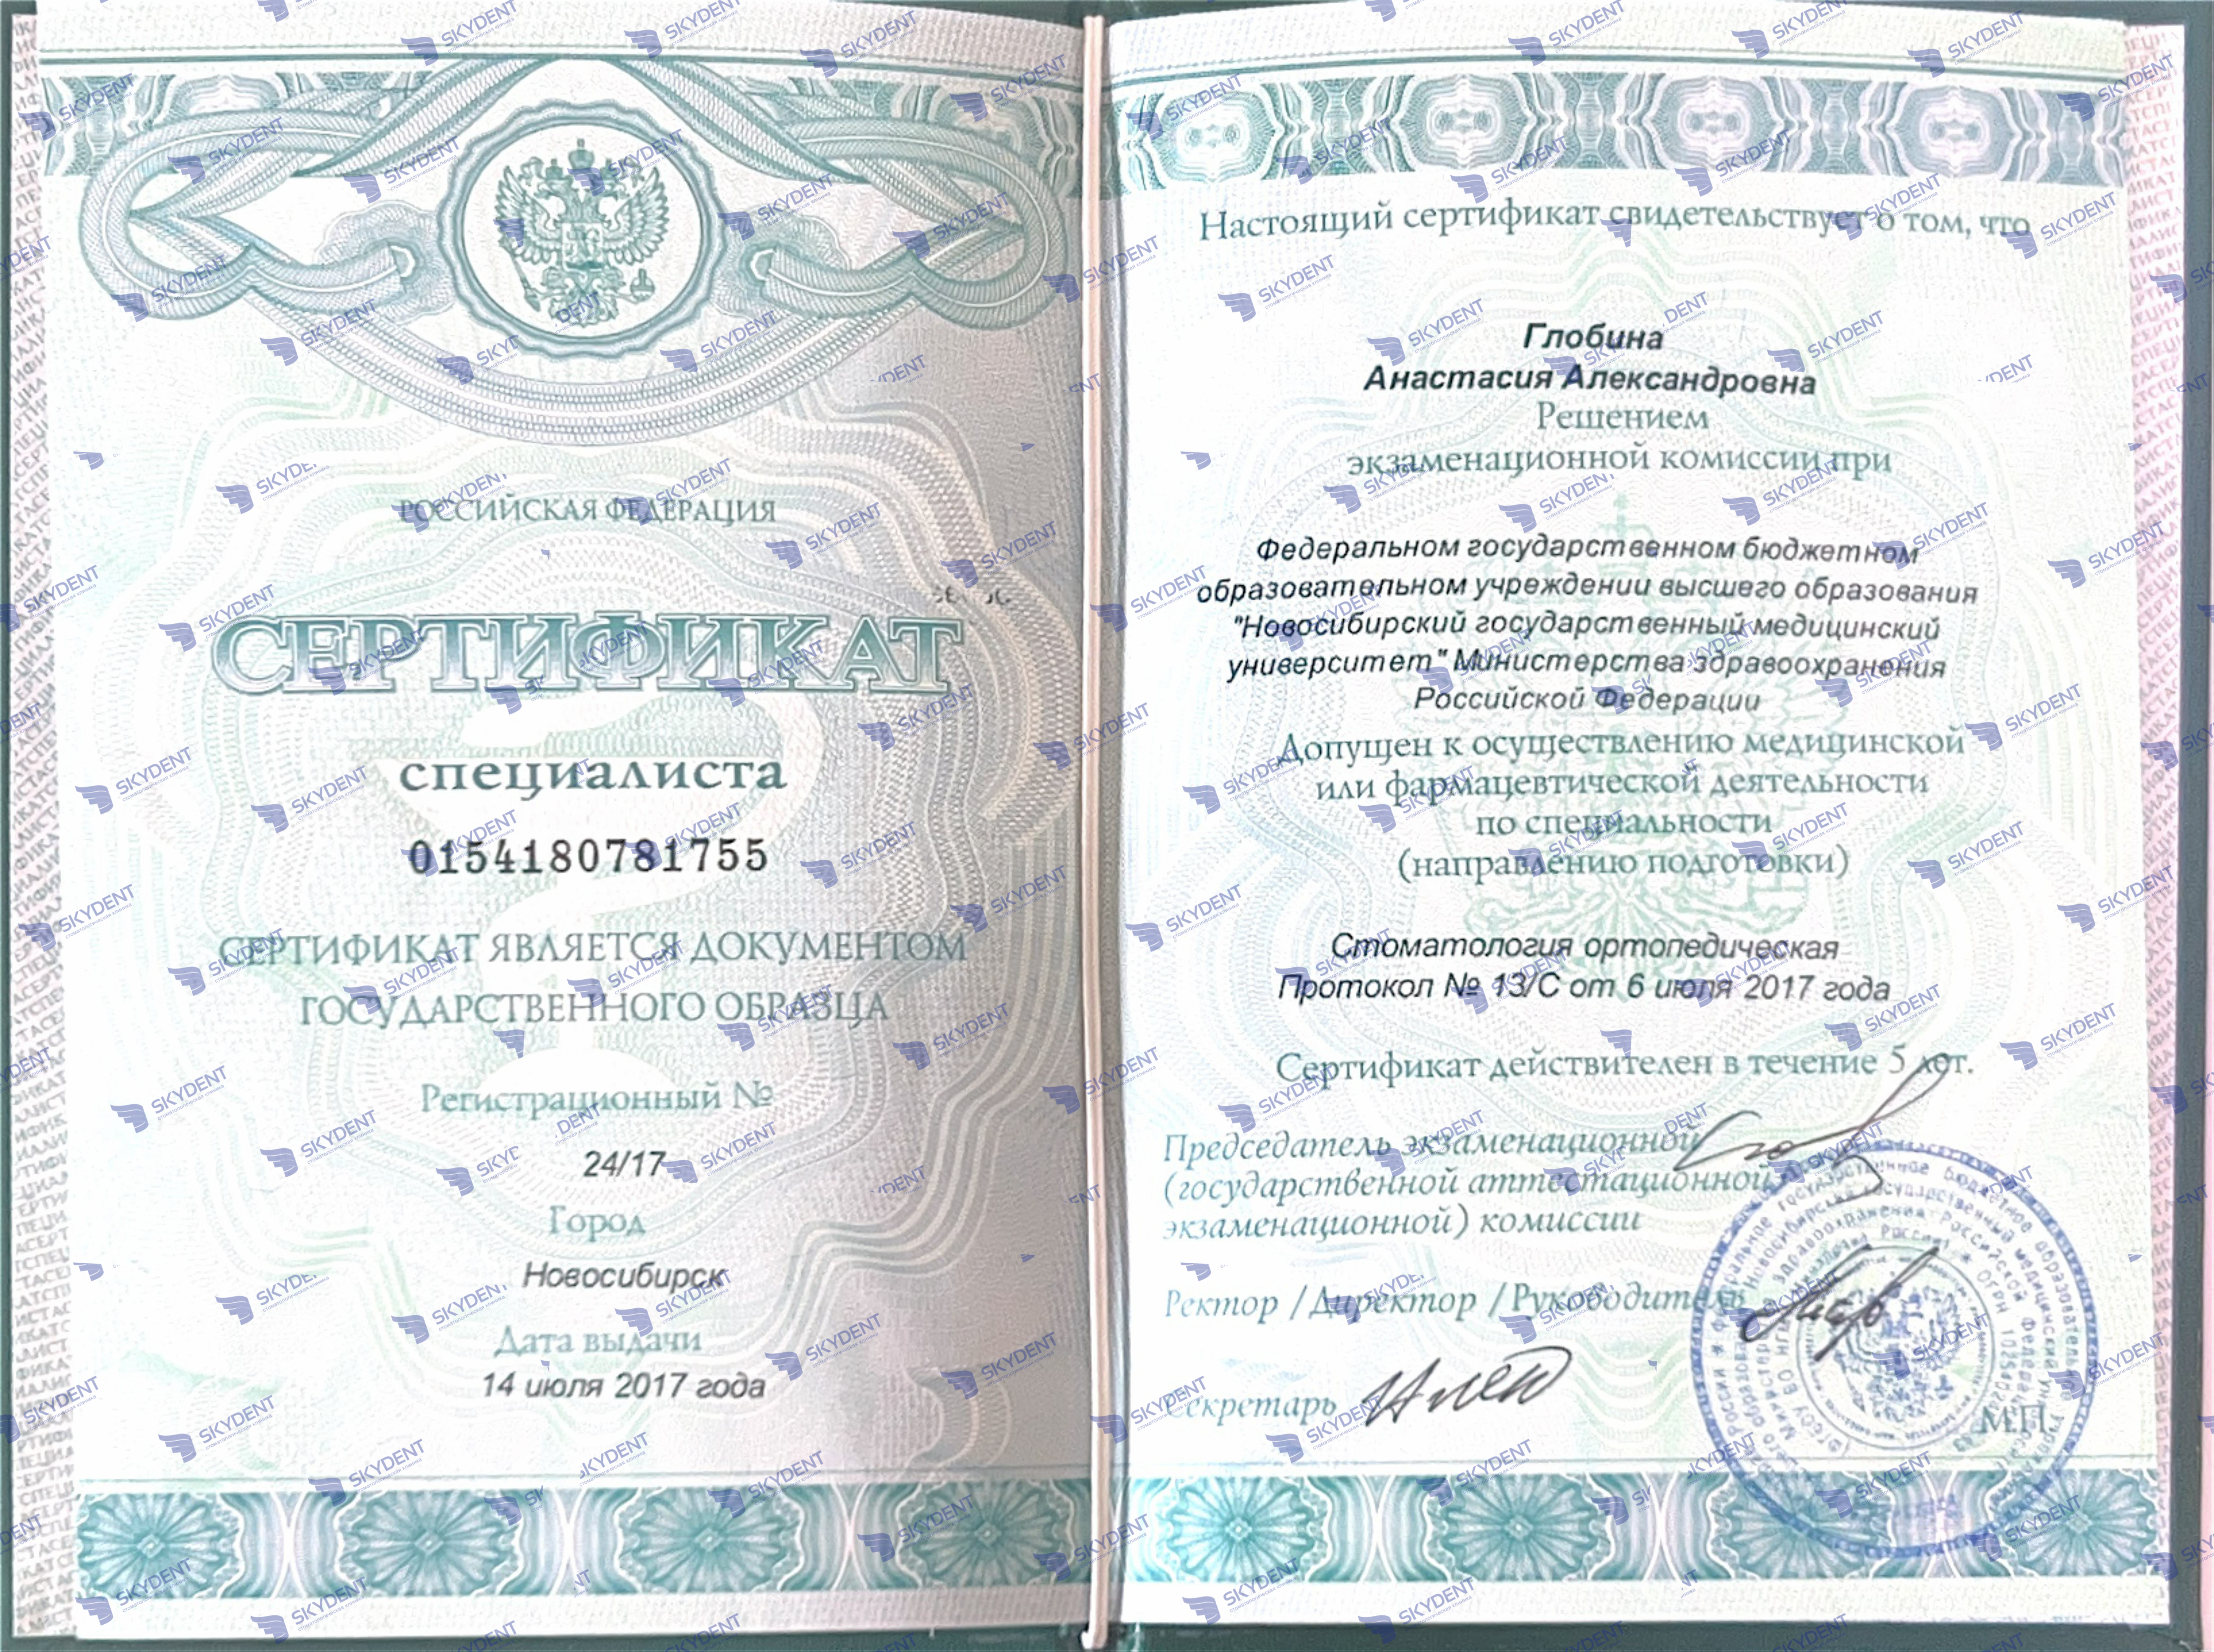 РОССИЙСКАЯ ФЕДЕРАЦИЯ
СЕРТИФИКАТ
специалиста
0154180781755
СЕРТИФИКАТ ЯВЛЯЕТСЯ ДОКУМЕНТОМ
ГОСУДАРСТВЕННОГО ОБРАЗЦА
Регистрационный №
24/17
Город
Новосибирск
Дата выдачи
14 июля 2017 года
Настоящий сертификат свидетельствует о том, что
Глобина
Анастасия Александровна
Решением
экзаменационной комиссии при
Федеральном государственном бюджетном
образовательном учреждении высшего образования
"Новосибирский государственный медицинский
университет" Министерства здравоохранения
Российской Федерации
Допущен к осуществлению медицинской
или фармацевтической деятельности
по специальности
(направлению подготовки)
Стоматология ортопедическая
Протокол № 13/С от 6 июля 2017 года
Сертификат действителен в течение 5 лет.
Председатель экзаменационной
(государственной аттестационной,
экзаменационной) комиссии
Ректор /Директор /Руководитель
Секретарь
М.П.
SKYDENT